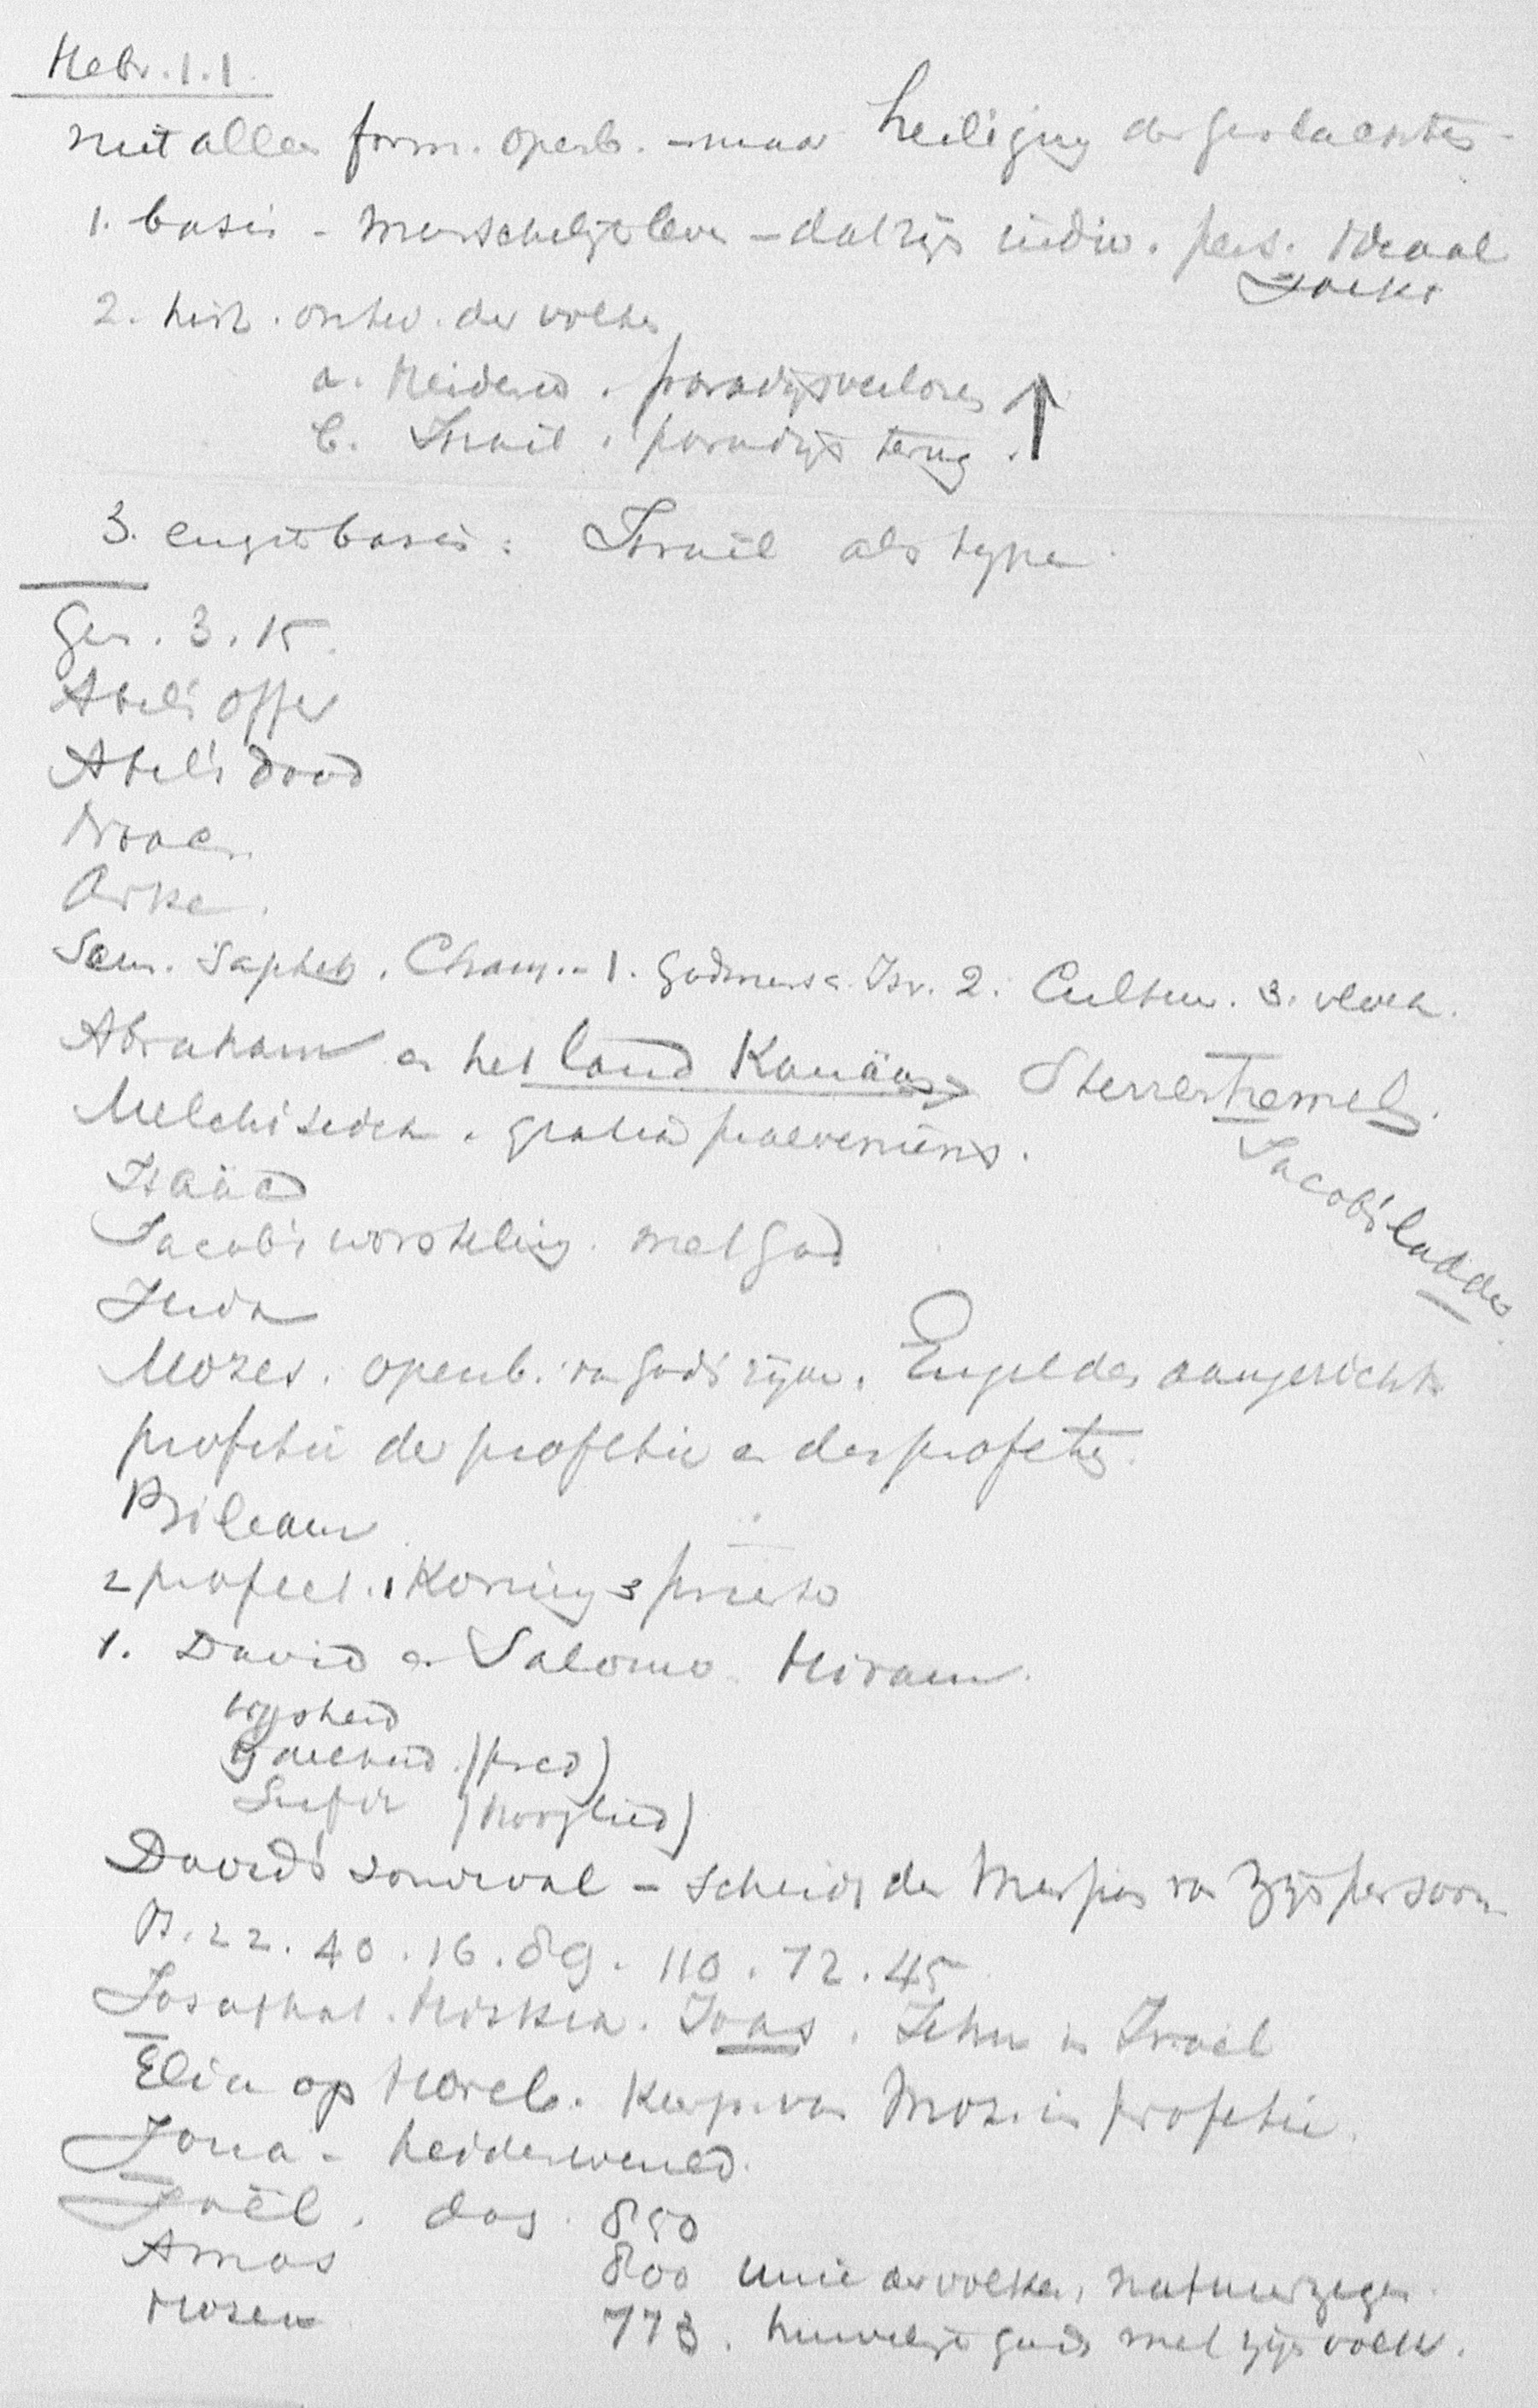 Hebr. 1.1
niet alleen form. openb. - maar heiliging der geslachten -
1. basis - menschelijk leven - dat zijn indiv. pers. ideaal
zoekt
2. hist. ontw. der volken
a. Heidend. paradijs verloren ↑
b. Israël. paradijs terug.
3. engste basis: Israël als type.
Gen. 3.15.
Abel's offer
Abel's dood
Noach
Arke.
Sem. Japhet. Cham. - 1. Isr. 2. Cultuur. 3. vloek.
Abraham en het land Kanaän > Sterrenhemel.
Melchisedek. gratia praeveniens.
Jacob's ladder
Isaäc
Jacob's worsteling met God
Juda
Mozes. openb. van God's zijn. Engel des aangezichts
profetie der profetie en der profeten.
Bileam
2 profeet. 1 Koning 3 priester
1. David en Salomo. Hiram.
wijsheid
ijdelheid (pred)
liefde (hooglied)
David's zondeval - scheidt den Messias van zijn persoon
Ps. 22. 40. 16. 89. 110. 72. 45
Josaphat. Hiskia. Joas. Jehu in Israël
Elia op Horeb. van Moz. in profetie.
Jona - heidenwereld.
Joël. dag. 850
Amos 800 unie der volken, natuurzegen.
Hosea 773. huwelijk Gods met zijn volk.